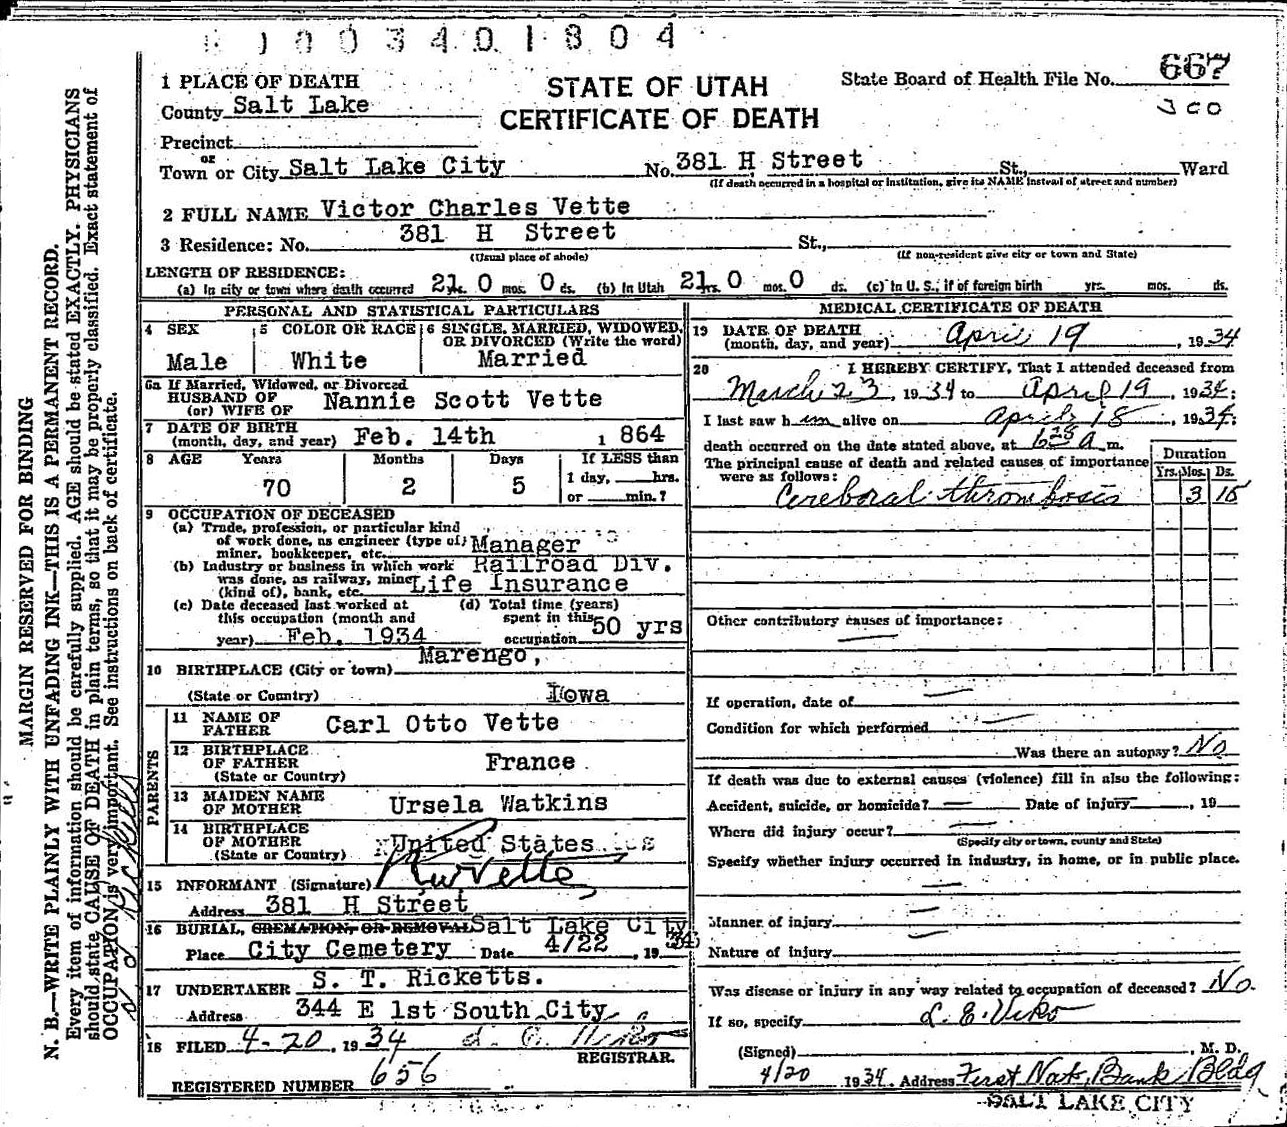 1003401804
STATE OF UTAH
CERTIFICATE OF DEATH
State Board of Health File No. 667
300
1 PLACE OF DEATH
County Salt Lake
Precinct
or
Town or City Salt Lake City No. 381 H Street St., Ward
(If death occurred in a hospital or institution, give its NAME instead of street and number)
2 FULL NAME Victor Charles Vette
3 Residence: No. 381 H Street St.,
(Usual place of abode) (If non-resident give city or town and State)
LENGTH OF RESIDENCE:
(a) In city or town where death occurred 21 yrs. 0 mos. 0 ds. (b) In Utah 21 yrs. 0 mos. 0 ds. (c) In U. S., if of foreign birth yrs. mos. ds.
PERSONAL AND STATISTICAL PARTICULARS
4 SEX
Male
5 COLOR OR RACE
White
6 SINGLE, MARRIED, WIDOWED, OR DIVORCED (Write the word)
Married
6a If Married, Widowed, or Divorced
HUSBAND OF
(or) WIFE OF Nannie Scott Vette
7 DATE OF BIRTH
(month, day, and year) Feb. 14th 1864
8 AGE Years Months Days If LESS than
70 2 5 1 day, hrs.
or min.?
9 OCCUPATION OF DECEASED
(a) Trade, profession, or particular kind
of work done, as engineer (type of)
miner, bookkeeper, etc. Manager
(b) Industry or business in which work Railroad Div.
was done, as railway, mine Life Insurance
(kind of), bank, etc.
(c) Date deceased last worked at
this occupation (month and
year) Feb. 1934
(d) Total time (years)
spent in this
occupation 50 yrs
10 BIRTHPLACE (City or town) Marengo,
(State or Country) Iowa
PARENTS
11 NAME OF
FATHER Carl Otto Vette
12 BIRTHPLACE
OF FATHER France
(State or Country)
13 MAIDEN NAME
OF MOTHER Ursela Watkins
14 BIRTHPLACE
OF MOTHER United States
(State or Country)
15 INFORMANT (Signature) Vette
Address 381 H Street
16 BURIAL, CREMATION, OR REMOVAL Salt Lake City
Place City Cemetery Date 4/22, 1934
17 UNDERTAKER S. T. Ricketts.
Address 344 E 1st South City
18 FILED 4-20, 1934
REGISTRAR.
REGISTERED NUMBER 656
MEDICAL CERTIFICATE OF DEATH
19 DATE OF DEATH
(month, day, and year) April 19, 1934
20 I HEREBY CERTIFY, That I attended deceased from
March 23, 1934 to April 19, 1934;
I last saw him alive on April 18, 1934;
death occurred on the date stated above, at 6 28 a. m.
The principal cause of death and related causes of importance
were as follows:
Duration
Yrs. Mos. Ds.
Cereboral thrombosis 3 15
Other contributory causes of importance:
If operation, date of
Condition for which performed
Was there an autopsy? No
If death was due to external causes (violence) fill in also the following:
Accident, suicide, or homicide? Date of injury , 19
Where did injury occur?
(Specify city or town, county and State)
Specify whether injury occurred in industry, in home, or in public place.
Manner of injury
Nature of injury
Was disease or injury in any way related to occupation of deceased? No.
If so, specify L. E. Viko
(Signed) , M. D.
4/20 1934. Address First Nat. Bank Bldg
SALT LAKE CITY
MARGIN RESERVED FOR BINDING
N. B.—WRITE PLAINLY WITH UNFADING INK—THIS IS A PERMANENT RECORD.
Every item of information should be carefully supplied. AGE should be stated EXACTLY. PHYSICIANS
should state CAUSE OF DEATH in plain terms, so that it may be properly classified. Exact statement of
OCCUPATION is very important. See instructions on back of certificate.